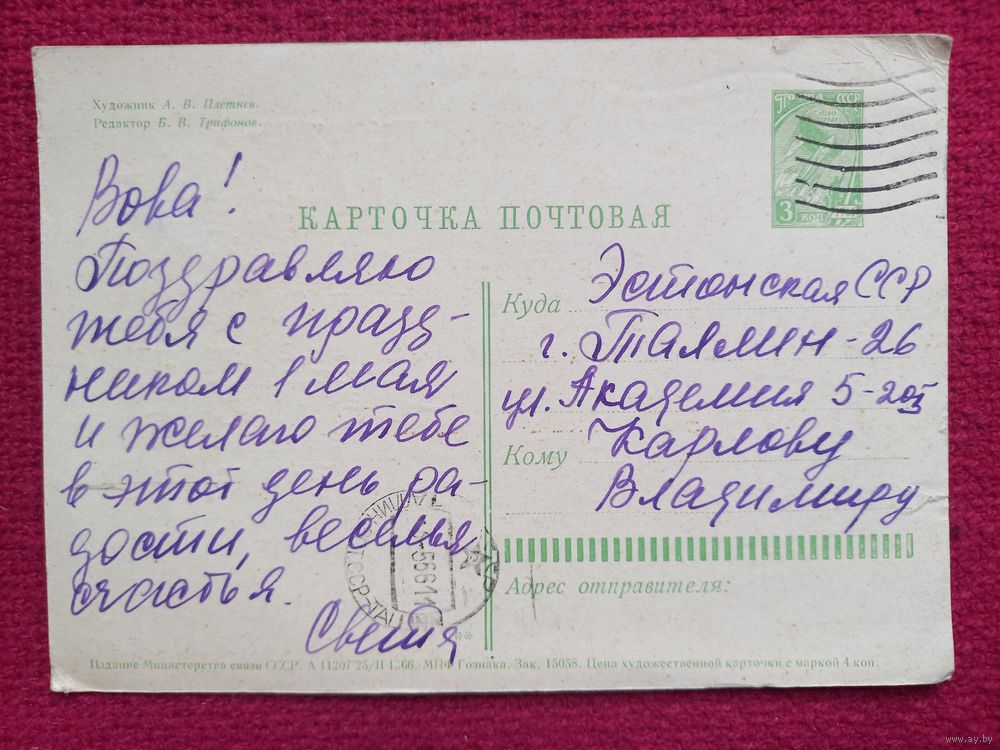 Художник А. В. Плетнев.
Редактор Б. В. Трифонов.
ПОЧТА СССР
3 коп
КАРТОЧКА ПОЧТОВАЯ
Вова!
Поздравляю
тебя с празд-
ником 1 мая
и желаю тебе
в этот день ра-
дости, веселья
счастья.
Света
Куда Эстонская ССР
г. Таллин-26
ул. Академия 5-205
Кому Карлову
Владимиру
Адрес отправителя:
Издание Министерства связи СССР. А 11207 25/II 1966. МПФ Гознака. Зак. 15058. Цена художественной карточки с маркой 4 коп.
www.ay.by